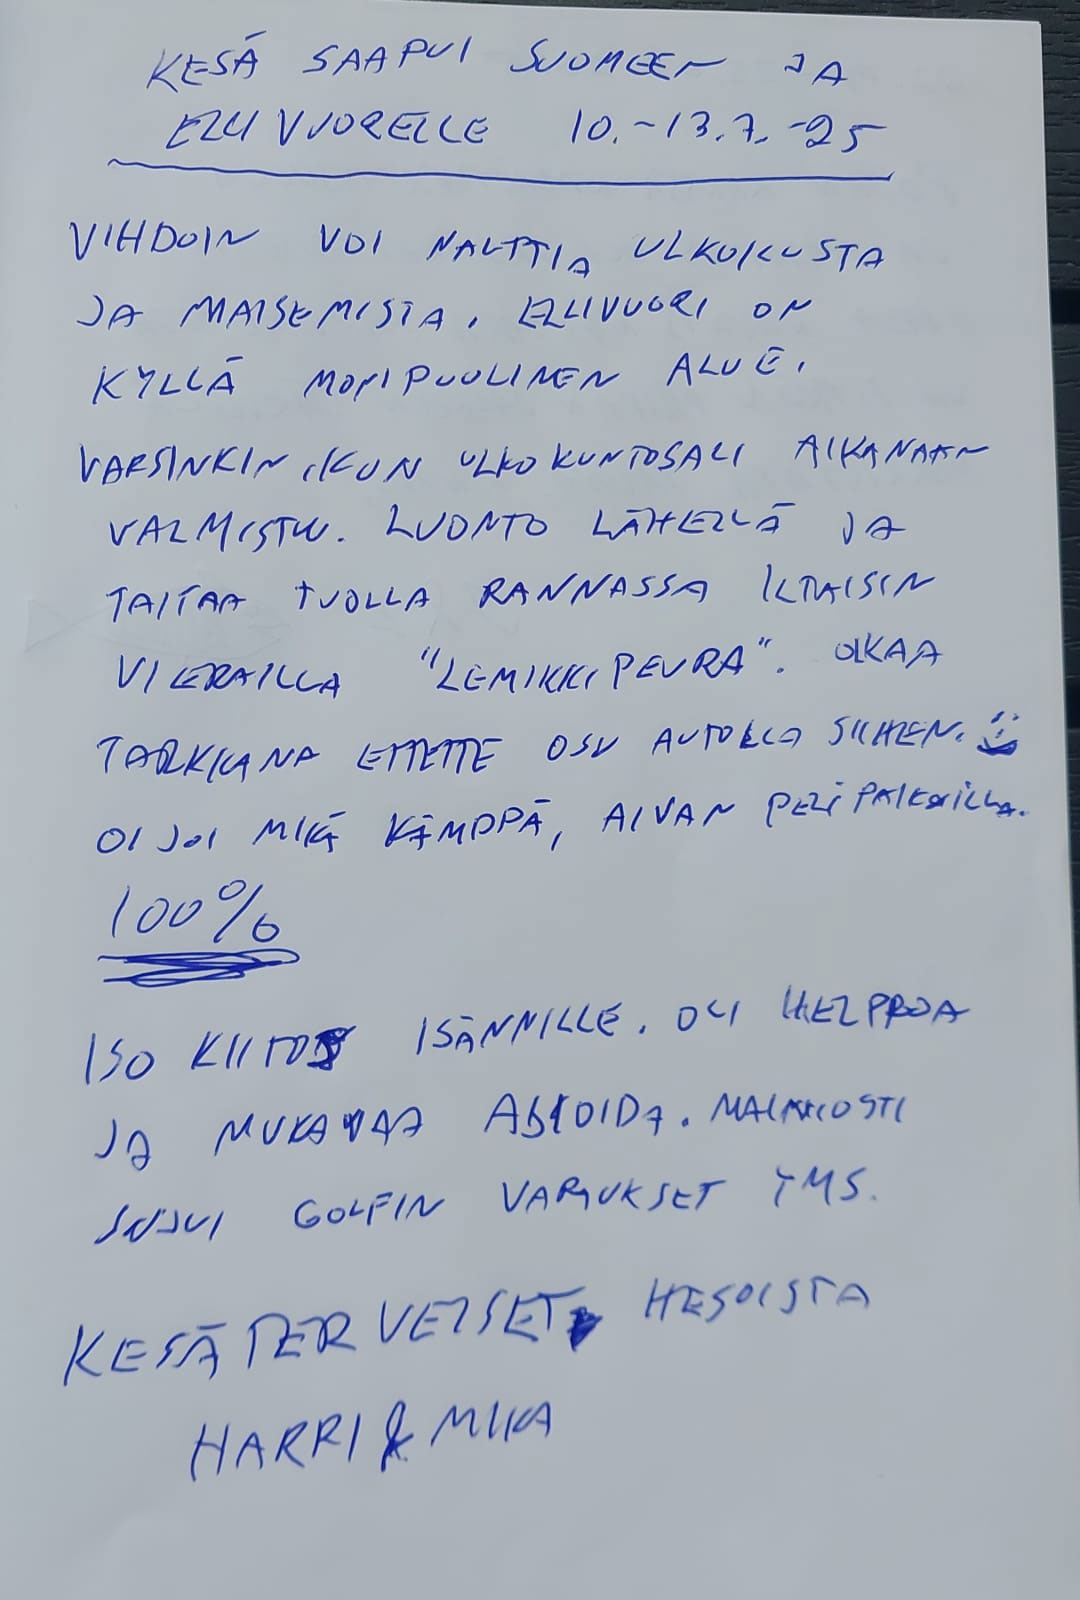 KESÄ SAAPUI SUOMEEN JA
ELLIVUORELLE 10.-13.7.-25
VIHDOIN VOI NAUTTIA ULKOILUSTA
JA MAISEMISTA. ELLIVUORI ON
KYLLÄ MONIPUOLINEN ALUE.
VARSINKIN, KUN ULKOKUNTOSALI AIKANAAN
VALMISTUU. LUONTO LÄHELLÄ JA
TAITAA TUOLLA RANNASSA ILTAISIN
VIERAILLA "LEMIKKIPEURA". OLKAA
TARKKANA ETTETTE OSU AUTOLLA SIIHEN. :)
OI JOI MIKÄ KÄMPPÄ, AIVAN PELIPAIKOILLA.
100%
ISO KIITOS ISÄNNILLE. OLI HELPPOA
JA MUKAVAA ASIOIDA. MALLIKKOSTI
SUJUI GOLFIN VARAUKSET YMS.
KESÄTERVEISET HESOISTA
HARRI & MIKA